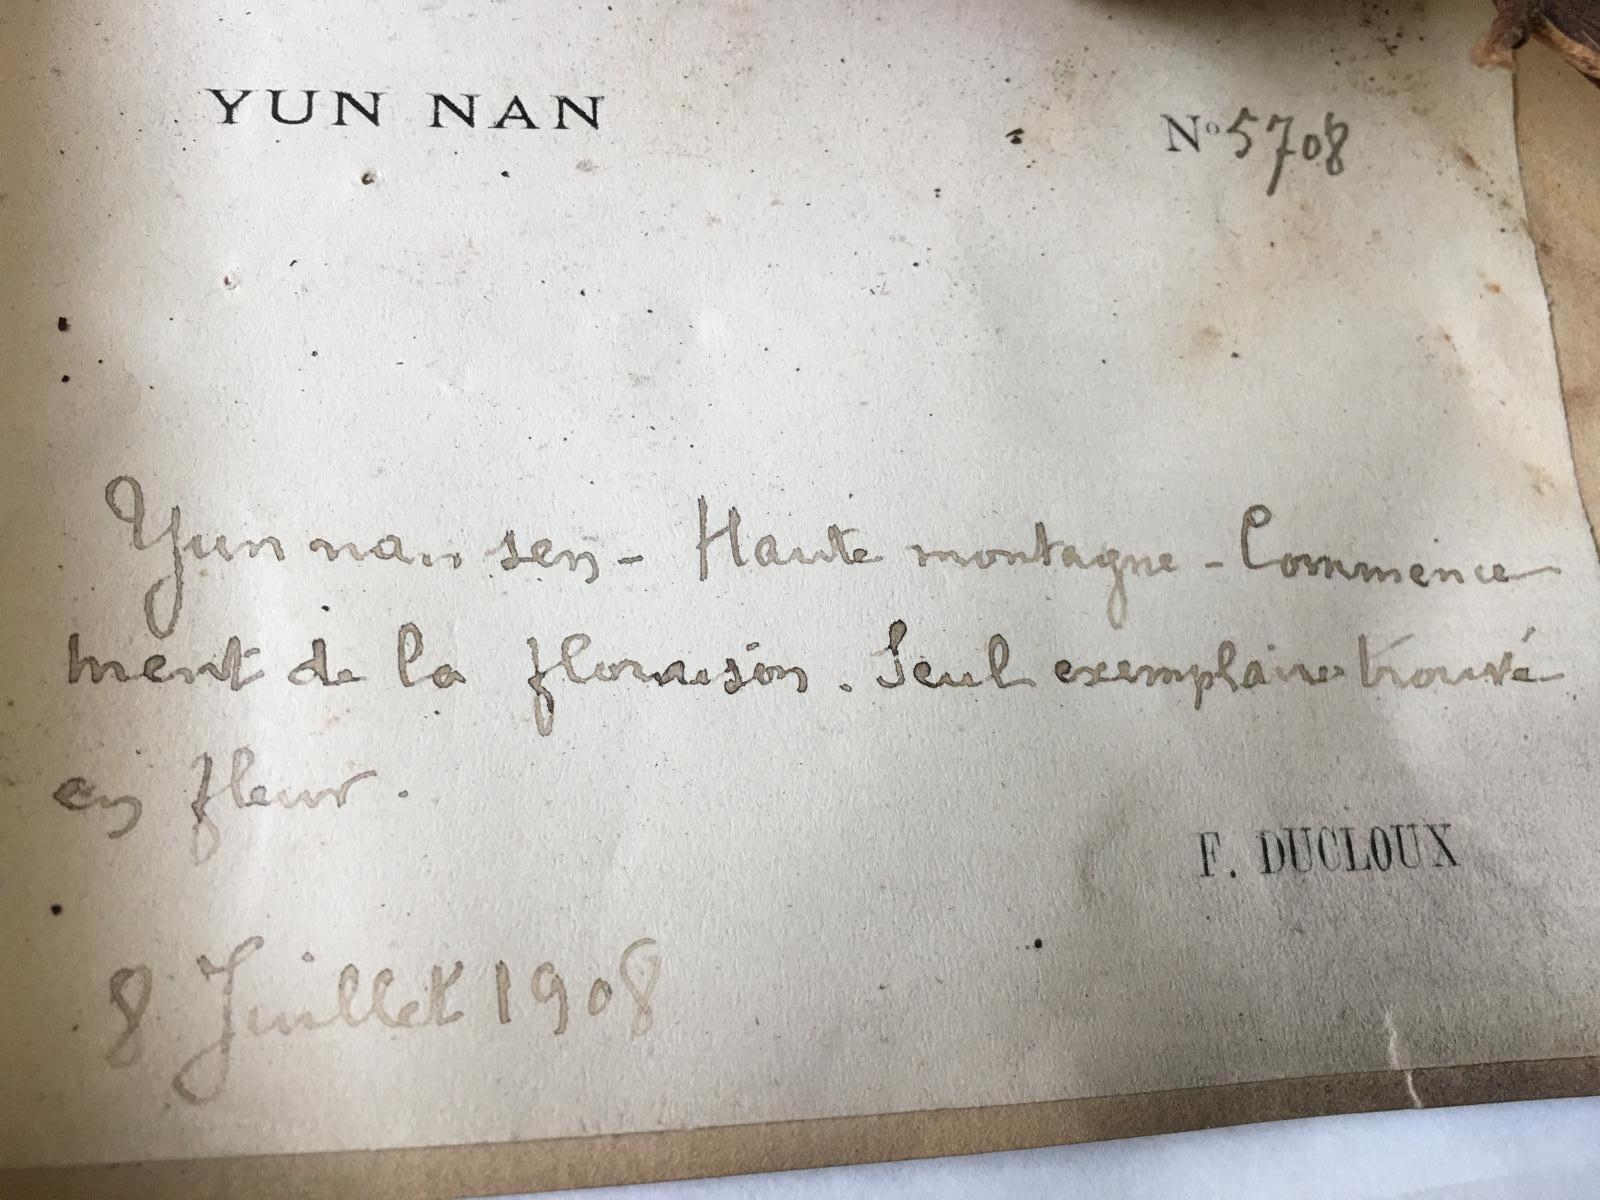 YUN NAN
Nº 5708
Yun nan sen - Haute montagne - Commence
ment de la floraison. Seul exemplaire trouvé
en fleur.
F. DUCLOUX
8 Juillet 1908